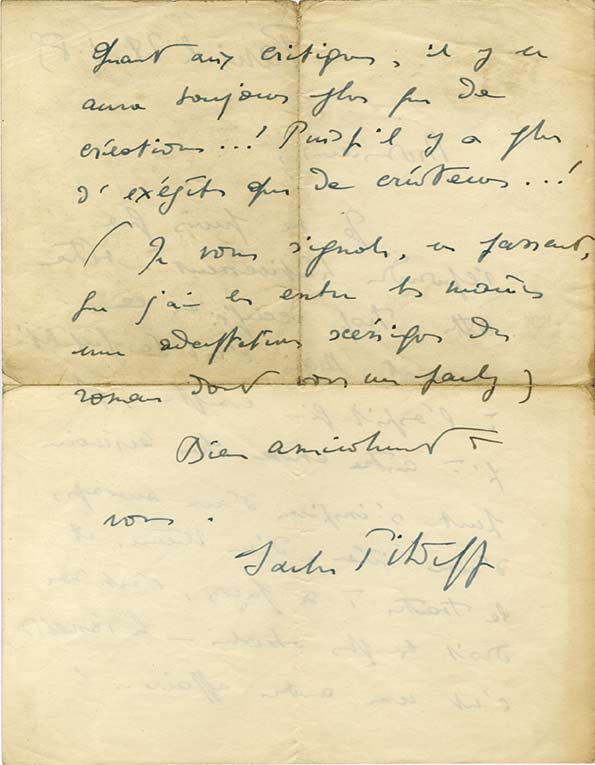 Quant aux critiques, il y en
aura toujours plus que de
créations...! Puisqu'il y a plus
d'exégètes que de créateurs...!
(Je vous signale, en passant,
que j'ai eu entre les mains
une adaptation scénique du
roman dont vous me parlez)
Bien amicalement à
vous.
Sacha Pitoëff